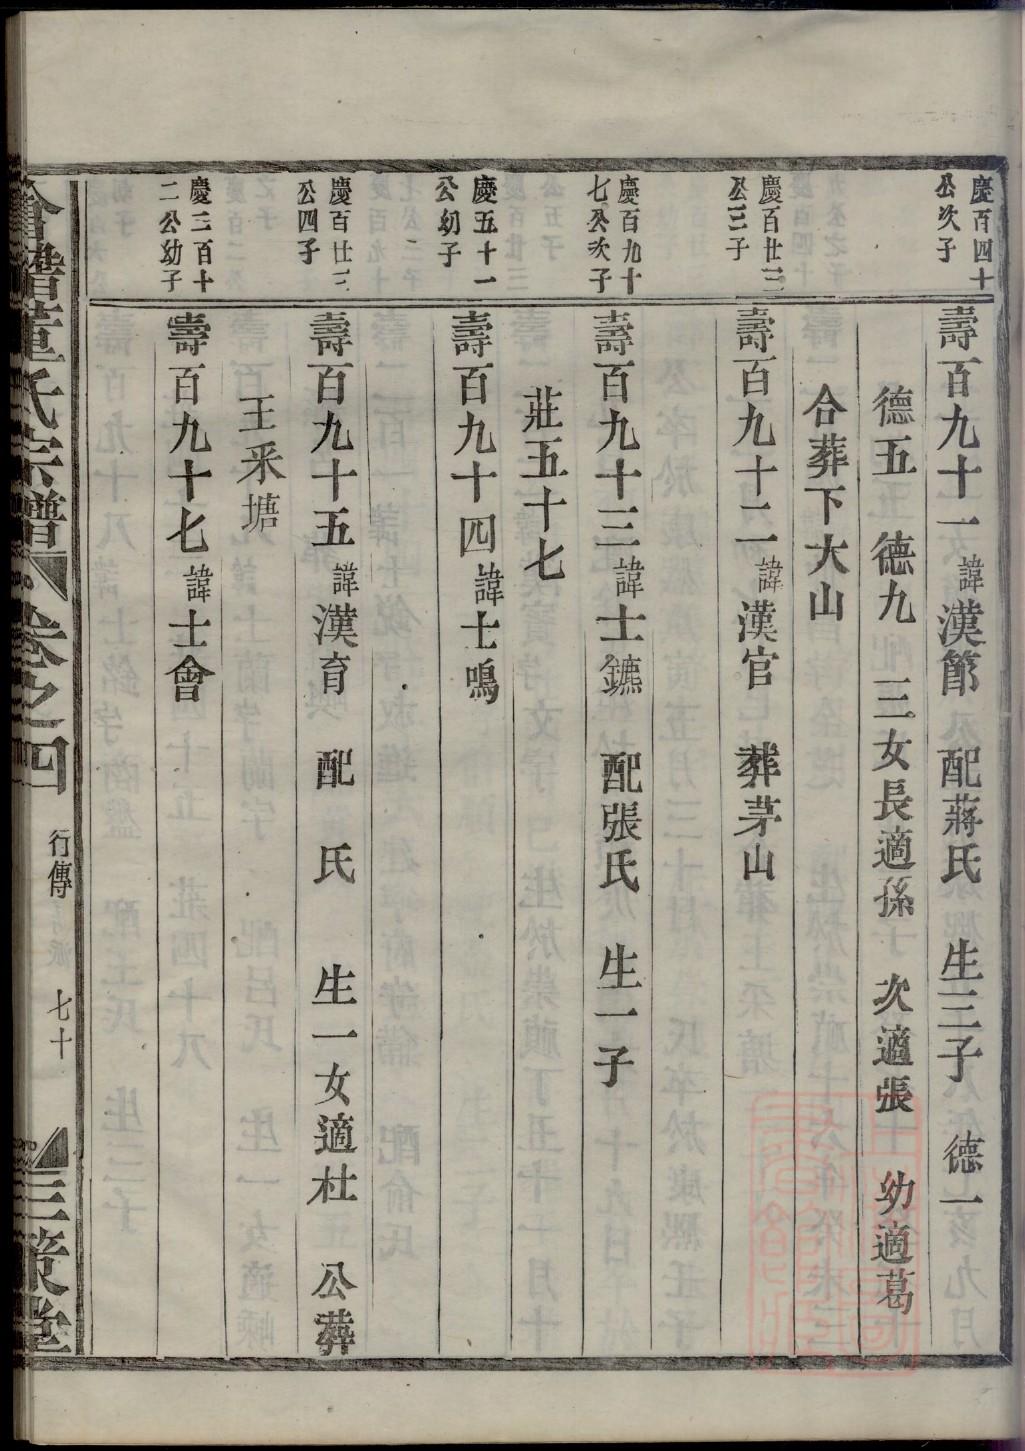 慶百四十
公次子
壽百九十一 諱漢節 配蔣氏 生三子 德一
德五 德九 三女長適孫 次適張 幼適葛
合葬下大山
慶百廿三
公三子
壽百九十二 諱漢官 葬茅山
慶百九十
七公次子
壽百九十三 諱士鑣 配張氏 生一子
莊五十七
慶五十一
公幼子
壽百九十四 諱士鳴
慶百廿三
公四子
壽百九十五 諱漢育 配 氏 生一女適杜 公葬
王釆塘
慶三百十
二公幼子
壽百九十七 諱士會
會稽董氏宗譜 卷之四 行傳 七十 三策堂